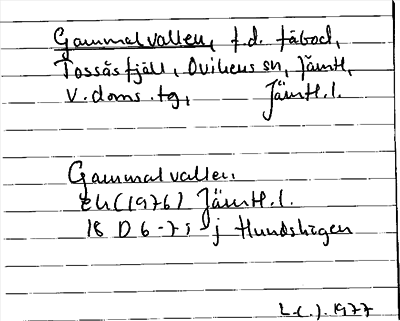 Gammelvallen, f.d. fäbod,
Tossåsfjäll, Ovikens sn, Jämtl,
V. doms. tg, Jämtl.l.
Gammalvallen.
Ek (1976) Jämtl.l.
18 D 6-7 i j Hundshögen
1977